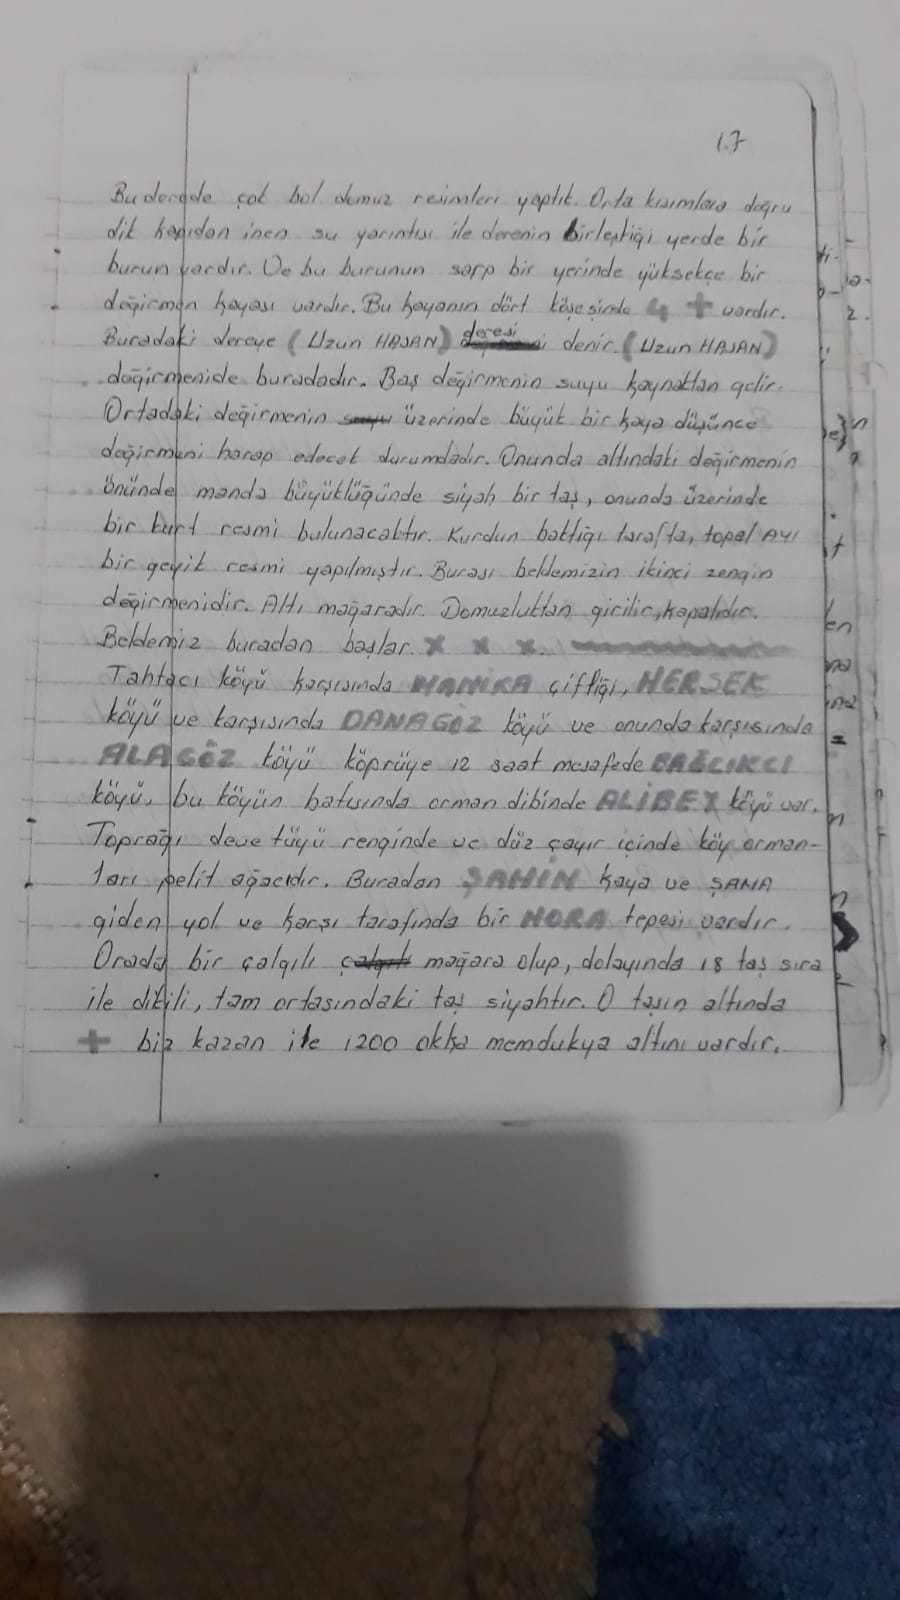 1.7
Bu derede çok bol domuz resimleri yaptık. Orta kısımlara doğru
dik kapıdan inen su yarıntısı ile derenin birleştiği yerde bir
burun vardır. Ve bu burunun sarp bir yerinde yüksekçe bir
değirmen kayası vardır. Bu kayanın dört köşesinde 4 + vardır.
Buradaki dereye (Uzun HASAN) deresi denir. (Uzun HASAN)
değirmenide buradadır. Baş değirmenin suyu kaynaktan gelir.
Ortadaki değirmenin üzerinde büyük bir kaya düşünce
değirmeni harap edecek durumdadır. Onunda altındaki değirmenin
önünde manda büyüklüğünde siyah bir taş, onunda üzerinde
bir kurt resmi bulunacaktır. Kurdun baktığı tarafta, topal AYI
bir geyik resmi yapılmıştır. Burası beldemizin ikinci zengin
değirmenidir. Altı mağaradır. Domuzluktan girilir, kapalıdır.
Beldemiz buradan başlar. X X X.
Tahtacı köyü karşısında çiftliği, HERSEK
köyü ve karşısında DANAGÖZ köyü ve onunda karşısında
ALAGÖZ köyü köprüye 12 saat mesafede BAĞLIKCI
köyü, bu köyün batısında orman dibinde ALİBEY köyü var.
Toprağı deve tüyü renginde ve düz çayır içinde köy orman-
ları pelit ağacıdır. Buradan ŞAHİN kaya ve ŞAMA
giden yol ve karşı tarafında bir HORA tepesi vardır.
Orada bir çalgılı mağara olup, dolayında 18 taş sıra
ile dikili, tam ortasındaki taş siyahtır. O taşın altında
+ bir kazan ile 1200 okka memdukya altını vardır.